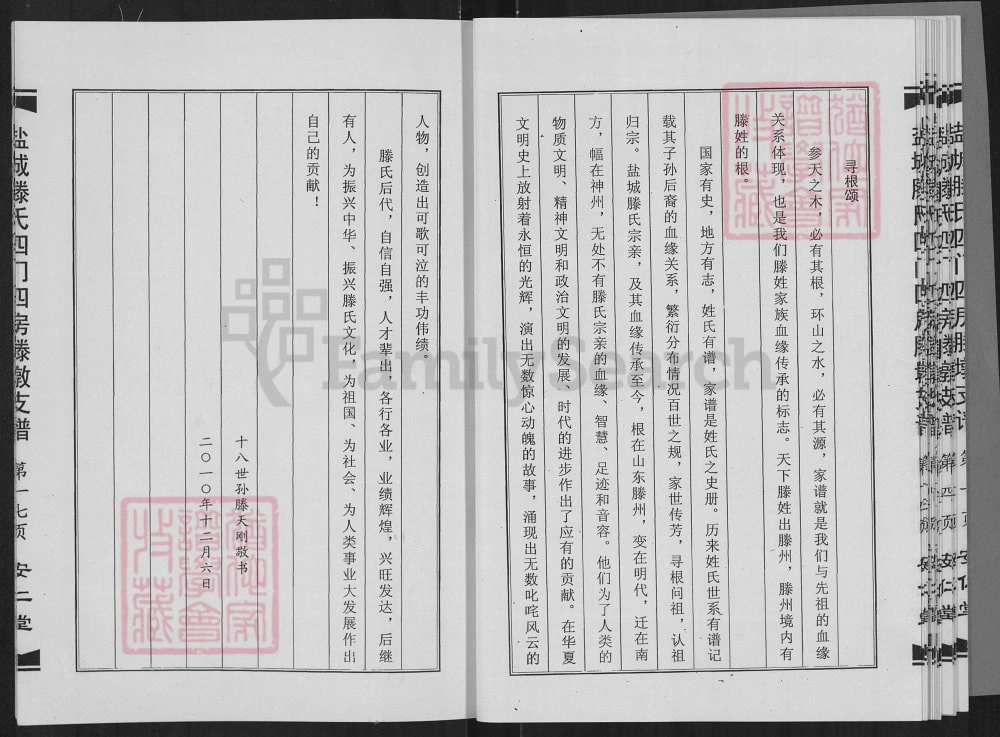 寻根颂
参天之木，必有其根，环山之水，必有其源，家谱就是我们与先祖的血缘
关系体现，也是我们滕姓家族血缘传承的标志。天下滕姓出滕州，滕州境内有
滕姓的根。
国家有史，地方有志，姓氏有谱，家谱是姓氏之史册。历来姓氏世系有谱记
载其子孙后裔的血缘关系，繁衍分布情况百世之规，家世传芳，寻根问祖，认祖
归宗。盐城滕氏宗亲，及其血缘传承至今，根在山东滕州，变在明代，迁在南
方，幅在神州，无处不有滕氏宗亲的血缘、智慧、足迹和音容。他们为了人类的
物质文明、精神文明和政治文明的发展、时代的进步作出了应有的贡献。在华夏
文明史上放射着永恒的光辉，演出无数惊心动魄的故事，涌现出无数叱咤风云的
人物，创造出可歌可泣的丰功伟绩。
滕氏后代，自信自强，人才辈出，各行各业，业绩辉煌，兴旺发达，后继
有人，为振兴中华、振兴滕氏文化，为祖国、为社会、为人类事业大发展作出
自己的贡献！
十八世孙滕天刚敬书
二〇一〇年十二月六日
盐城滕氏四门四房滕墩支谱 第一七页 安仁堂
FamilySearch